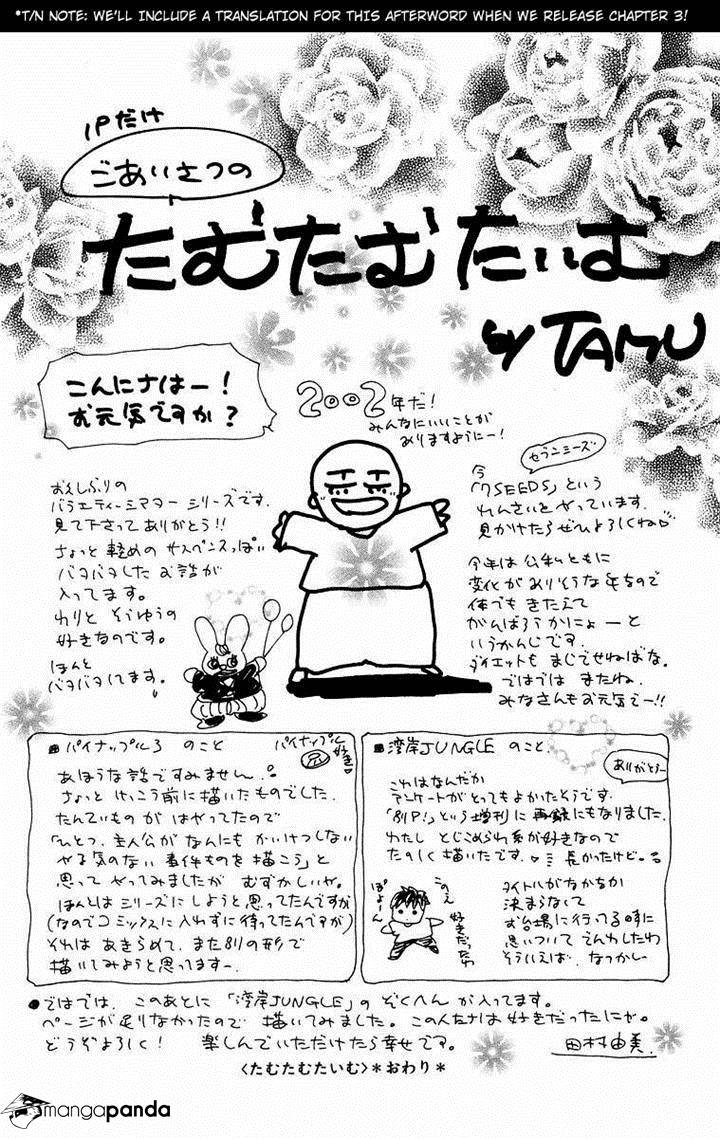 *T/N NOTE: WE'LL INCLUDE A TRANSLATION FOR THIS AFTERWORD WHEN WE RELEASE CHAPTER 3!
1Pだけ
ごあいさつの
たむたむたいむ
by TAMU
こんにちはー!
お元気ですか?
2002年だ!
みんなにいいことが
ありますようにー!
おひさしぶりの
バラエティーシアター シリーズです。
見て下さってありがとう!!
ちょっと軽めの サスペンスっぽい
バタバタした お話が
入ってます。
わりと そうゆうの
好きなのです。
ほんと
バタバタしてます。
セブンシーズ
今
「7SEEDS」という
れんさいをやっています。
見かけたらぜひよろしくね♡
今年は公私ともに
変化がありそうな年なので
体でも きたえて
がんばろうかにょーと
いうかんじです。
ダイエットも まじでせねばな。
ではでは またね。
みなさんもお元気でー!!
パイナップルろ のこと
パイナップル
好き
あほうな話ですみません。
ちょっと けっこう前に描いたものでした。
たんていもの が はやってたので
「ひとつ、主人公が なんにも かいけつしない
やる気のない 事件ものを 描こう」と
思って やってみましたが むずかしいや。
ほんとは シリーズに しようと思ってたんですが
(なのでコミックスに入れずに待ってたんですが)
それは あきらめて、また別の形で
描いてみようと思ってますー。
湾岸JUNGLE のこと
ありがとうー
これはなんだか
アンケートがとってもよかったそうです。
「別P!」という増刊に再録にもなりました。
わたし とじこめられ系が好きなので
たのしく描いたです。♡ 長かったけど。
このえ
好きだったわ
ぽよーん
タイトルがなかなか
決まらなくて
お台場に行ってる時に
思いついて でんわしたわ
そういえば。なつかしー
●ではでは、このあとに「湾岸JUNGLE」の ぞくへん が入ってます。
ページが足りなかったので 描いてみました。この人たちは好きだったにゃ。
どうぞよろしく! 楽しんでいただけたら幸せです。
田村由美
〈たむたむたいむ〉*おわり*
mangapanda